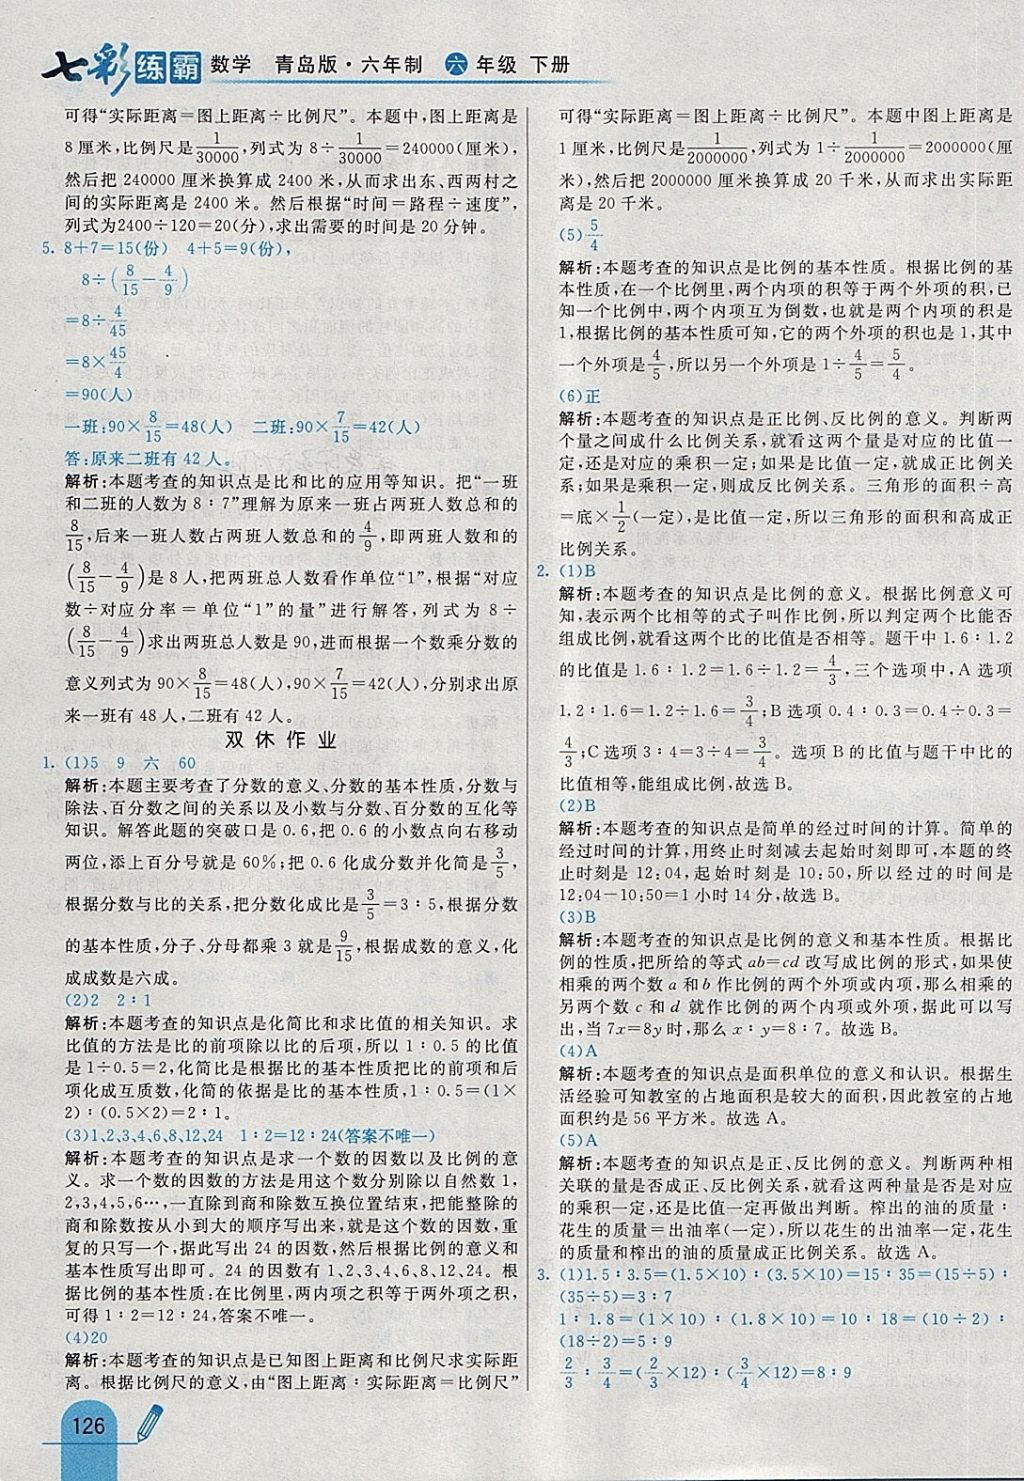 七彩练霸 数学 青岛版·六年制 六年级 下册
可得“实际距离=图上距离÷比例尺”。本题中,图上距离是
8厘米,比例尺是1/30000,列式为 8÷1/30000=240000(厘米),
然后把 240000 厘米换算成 2400 米,从而求出东、西两村之
间的实际距离是 2400 米。然后根据“时间=路程÷速度”,
列式为2400÷120=20(分),求出需要的时间是 20 分钟。
5. 8+7=15(份) 4+5=9(份),
8÷(8/15-4/9)
=8÷4/45
=8×45/4
=90(人)
一班:90×8/15=48(人) 二班:90×7/15=42(人)
答:原来二班有 42 人。
解析:本题考查的知识点是比和比的应用等知识。把“一班
和二班的人数为 8∶7”理解为原来一班占两班人数总和的
8/15,后来一班人数占两班人数总和的4/9,即两班人数和的
(8/15-4/9)是 8 人,把两班总人数看作单位“1”,根据“对应
数÷对应分率=单位“1”的量”进行解答,列式为 8÷
(8/15-4/9)求出两班总人数是 90,进而根据一个数乘分数的
意义列式为 90×8/15=48(人),90×7/15=42(人),分别求出原
来一班有 48 人,二班有 42 人。
双休作业
1. (1)5 9 六 60
解析:本题主要考查了分数的意义、分数的基本性质,分数与
除法、百分数之间的关系以及小数与分数、百分数的互化等
知识。解答此题的突破口是 0.6,把 0.6 的小数点向右移动
两位,添上百分号就是 60%;把 0.6 化成分数并化简是3/5,
根据分数与比的关系,把分数化成比是3/5=3∶5,根据分数
的基本性质,分子、分母都乘 3 就是9/15,根据成数的意义,化
成成数是六成。
(2)2 2∶1
解析:本题考查的知识点是化简比和求比值的相关知识。求
比值的方法是比的前项除以比的后项,所以 1∶0.5 的比值
是 1÷0.5=2,化简比是根据比的基本性质把比的前项和后
项化成互质数,化简的依据是比的基本性质,1∶0.5=(1×
2)∶(0.5×2)=2∶1。
(3)1、2、3、4、6、8、12、24 1∶2=12∶24(答案不唯一)
解析:本题考查的知识点是求一个数的因数以及比例的意
义。求一个数的因数的方法是用这个数分别除以自然数 1,
2,3,4,5,6…,一直除到商和除数互换位置结束,把能整除的
商和除数按从小到大的顺序写出来,就是这个数的因数,重
复的只写一个,据此写出 24 的因数,然后根据比例的意义和
基本性质写出即可。24 的因数有 1、2、3、4、6、8、12、24。根
据比例的基本性质:在比例里,两内项之积等于两外项之积,
可得 1∶2=12∶24,答案不唯一。
(4)20
解析:本题考查的知识点是已知图上距离和比例尺求实际距
离。根据比例尺的意义,由“图上距离∶实际距离=比例尺”
可得“实际距离=图上距离÷比例尺”。本题中图上距离是
1厘米,比例尺是1/2000000,列式为 1÷1/2000000=2000000(厘
米),然后把 2000000 厘米换算成 20 千米,从而求出实际距
离是 20 千米。
(5)5/4
解析:本题考查的知识点是比例的基本性质。根据比例的基
本性质,在一个比例里,两个内项的积等于两个外项的积,已
知一个比例中,两个内项互为倒数,也就是两个内项的积是
1,根据比例的基本性质可知,它的两个外项的积也是 1,其中
一个外项是4/5,所以另一个外项是 1÷4/5=5/4。
(6)正
解析:本题考查的知识点是正比例、反比例的意义。判断两
个量之间成什么比例关系,就看这两个量是对应的比值一
定,还是对应的乘积一定;如果是比值一定,就成正比例关
系;如果是乘积一定,则成反比例关系。三角形的面积÷高
=底×1/2(一定),是比值一定,所以三角形的面积和高成正
比例关系。
2. (1)B
解析:本题考查的知识点是比例的意义。根据比例意义可
知,表示两个比相等的式子叫作比例,所以判定两个比能否
组成比例,就看这两个比的比值是否相等。题干中 1.6∶1.2
的比值是 1.6∶1.2=1.6÷1.2=4/3,三个选项中,A 选项
1.2∶1.6=1.2÷1.6=3/4;B选项 0.4∶0.3=0.4÷0.3=
4/3;C选项 3∶4=3÷4=3/4。选项 B 的比值与题干中比的
比值相等,能组成比例,故选 B。
(2)B
解析:本题考查的知识点是简单的经过时间的计算。简单的
经过时间的计算,用终止时刻减去起始时刻即可,本题的终
止时刻是 12:04,起始时刻是 10:50,所以经过的时间是
12:04-10:50=1小时 14 分,故选 B。
(3)B
解析:本题考查的知识点是比例的意义和基本性质。根据比
例的性质,把所给的等式 ab=cd 改写成比例的形式,如果使
相乘的两个数 a 和 b 作比例的两个外项或内项,那么相乘的
另两个数 c 和 d 就作比例的两个内项或外项,据此可以写
出,当 7x=8y 时,那么 x∶y=8∶7。故选 B。
(4)A
解析:本题考查的知识点是面积单位的意义和认识。根据生
活经验可知教室的占地面积是较大的面积,因此教室的占地
面积约是 56 平方米。故选 A。
(5)A
解析:本题考查的知识点是正、反比例的意义。判断两种相
关联的量是否成正、反比例关系,就看这两种量是否是对应
的乘积一定,或比值一定再做出判断。榨出的油的质量÷
花生的质量=出油率(一定),所以花生的出油率一定,花生
的质量和榨出的油的质量成正比例关系。故选 A。
3. (1)1.5∶3.5=(1.5×10)∶(3.5×10)=15∶35=(15÷5)∶
(35÷5)=3∶7
1∶1.8=(1×10)∶(1.8×10)=10∶18=(10÷2)∶
(18÷2)=5∶9
2/3∶3/4=(2/3×12)∶(3/4×12)=8∶9
126